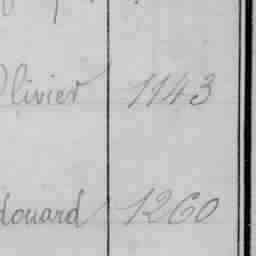 Olivier 1143
douard 1260